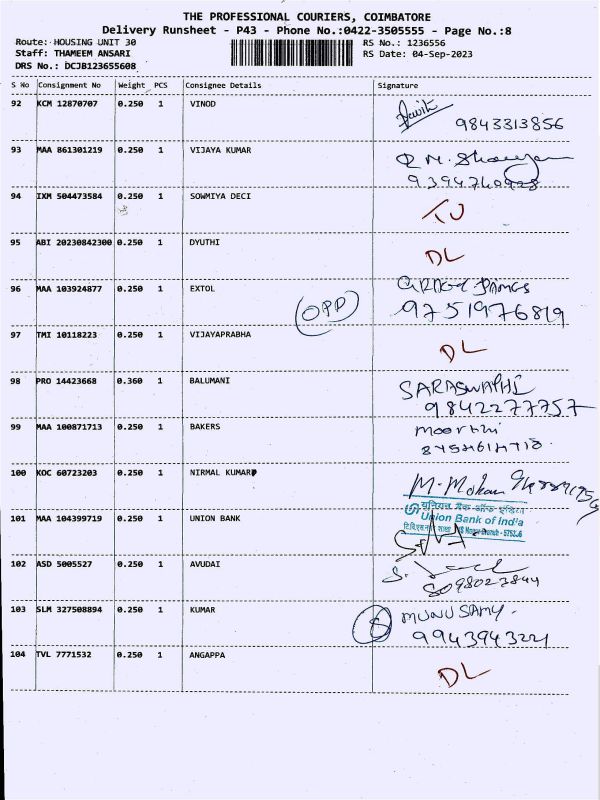 THE PROFESSIONAL COURIERS, COIMBATORE
Delivery Runsheet - P43 - Phone No.:0422-3505555 - Page No.:8
Route: HOUSING UNIT 30 RS No.: 1236556
Staff: THAMEEM ANSARI RS Date: 04-Sep-2023
DRS No.: DCJB123655608
S No Consignment No Weight PCS Consignee Details Signature
92 KCM 12870707 0.250 1 VINOD
9843313856
93 MAA 861301219 0.250 1 VIJAYA KUMAR
94 IXM 504473584 0.250 1 SOWMIYA DECI
95 ABI 20230842300 0.250 1 DYUTHI DL
96 MAA 103924877 0.250 1 EXTOL
OPP 9751976819
97 TMI 10118223 0.250 1 VIJAYAPRABHA
DL
98 PRO 14423668 0.360 1 BALUMANI SARASWATHI
9842277757
99 MAA 100871713 0.250 1 BAKERS Moorthi
100 KOC 60723203 0.250 1 NIRMAL KUMAR M. Mohan
यूनियन बैंक ऑफ इंडिया
101 MAA 104399719 0.250 1 UNION BANK Union Bank of India
102 ASD 5005527 0.250 1 AVUDAI
103 SLM 327508894 0.250 1 KUMAR MUNUSAMY.
9943943221
104 TVL 7771532 0.250 1 ANGAPPA
DL